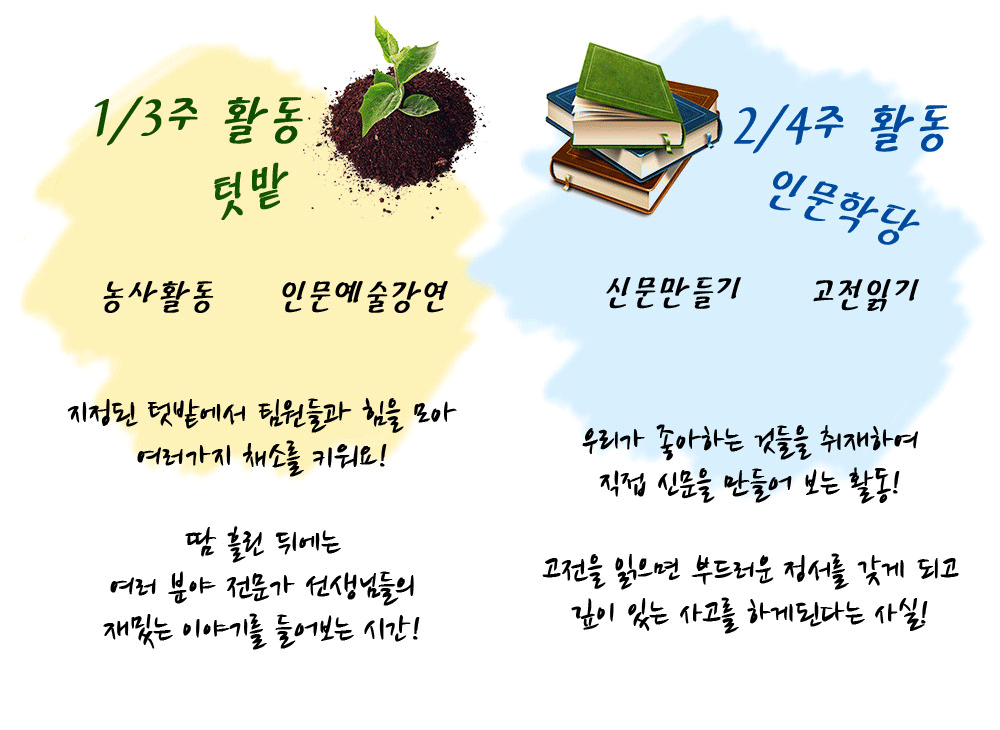 1/3주 활동
텃밭
농사활동 인문예술강연
지정된 텃밭에서 팀원들과 힘을 모아
여러가지 채소를 키워요!
땀 흘린 뒤에는
여러 분야 전문가 선생님들의
재밌는 이야기를 들어보는 시간!
2/4주 활동
인문학당
신문만들기 고전읽기
우리가 좋아하는 것들을 취재하여
직접 신문을 만들어 보는 활동!
고전을 읽으면 부드러운 정서를 갖게 되고
깊이 있는 사고를 하게된다는 사실!